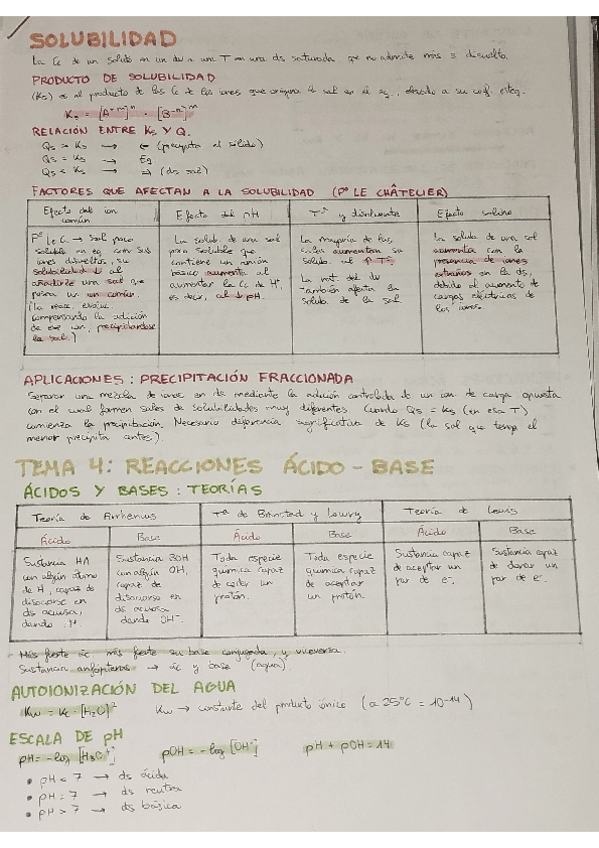 SOLUBILIDAD
La Cc de un soluto en un dv a una T en una ds saturada que no admite más s disuelto.
PRODUCTO DE SOLUBILIDAD
(Ks) es el producto de las Cc de los iones que origina la sal en el eq, elevado a su coef. esteq.
Ks = [A+m]n · [B-n]m
RELACIÓN ENTRE Ks Y Q.
Qs > Ks → ← (precipita el sólido)
Qs = Ks → Eq
Qs < Ks → → (ds sat)
FACTORES QUE AFECTAN A LA SOLUBILIDAD (Pº LE CHÂTELIER)
Efecto del ion común
Efecto del pH
Tª y disolvente
Efecto salino
Pº Le C. → Sal poco soluble en eq. con sus iones disueltos, su solubilidad ↓ al añadirle una sal que posea un ion común.
(la reacc. evoluc. compensando la adición de ese ion, precipitándose la sal.)
La solub. de una sal poco soluble que contiene un anión básico aumenta al aumentar la Cc de H+, es decir, al ↓ pH.
La mayoría de las sales aumentan su solub. al ↑ Tª.
La nat. del dv también afecta la solub. de la sal
La solub. de una sal aumenta con la presencia de iones extraños en la ds, debido al aumento de cargas eléctricas de los iones.
APLICACIONES: PRECIPITACIÓN FRACCIONADA
Separar una mezcla de iones en ds mediante la adición controlada de un ion de carga opuesta
con el cual formen sales de solubilidades muy diferentes (cuando Qs = Ks (en esa T)
comienza la precipitación. Necesario diferencia significativa de Ks (la sal que tenga el
menor precipita antes.)
TEMA 4: REACCIONES ÁCIDO - BASE
ÁCIDOS Y BASES: TEORÍAS
Teoría de Arrhenius
Tª de Brönsted y Lowry
Teoría de Lewis
Ácido
Base
Ácido
Base
Ácido
Base
Sustancia HA con algún átomo de H, capaz de disociarse en ds acuosa, dando H+.
Sustancia BOH con algún OH, capaz de disociarse en ds acuosa dando OH-.
Toda especie química capaz de ceder un protón.
Toda especie química capaz de aceptar un protón
Sustancia capaz de aceptar un par de e-.
Sustancia capaz de donar un par de e-.
Más fuerte ác más feble su base conjugada, y viceversa.
Sustancia anfóteras → ác y base (agua).
AUTOIONIZACIÓN DEL AGUA
Kw = Kc · [H2O]2 Kw → constante del producto iónico (a 25°C = 10-14)
ESCALA DE pH
pH = -log [H3O+] pOH = -log [OH-] pH + pOH = 14
• pH < 7 → ds ácida
• pH = 7 → ds neutra
• pH > 7 → ds básica